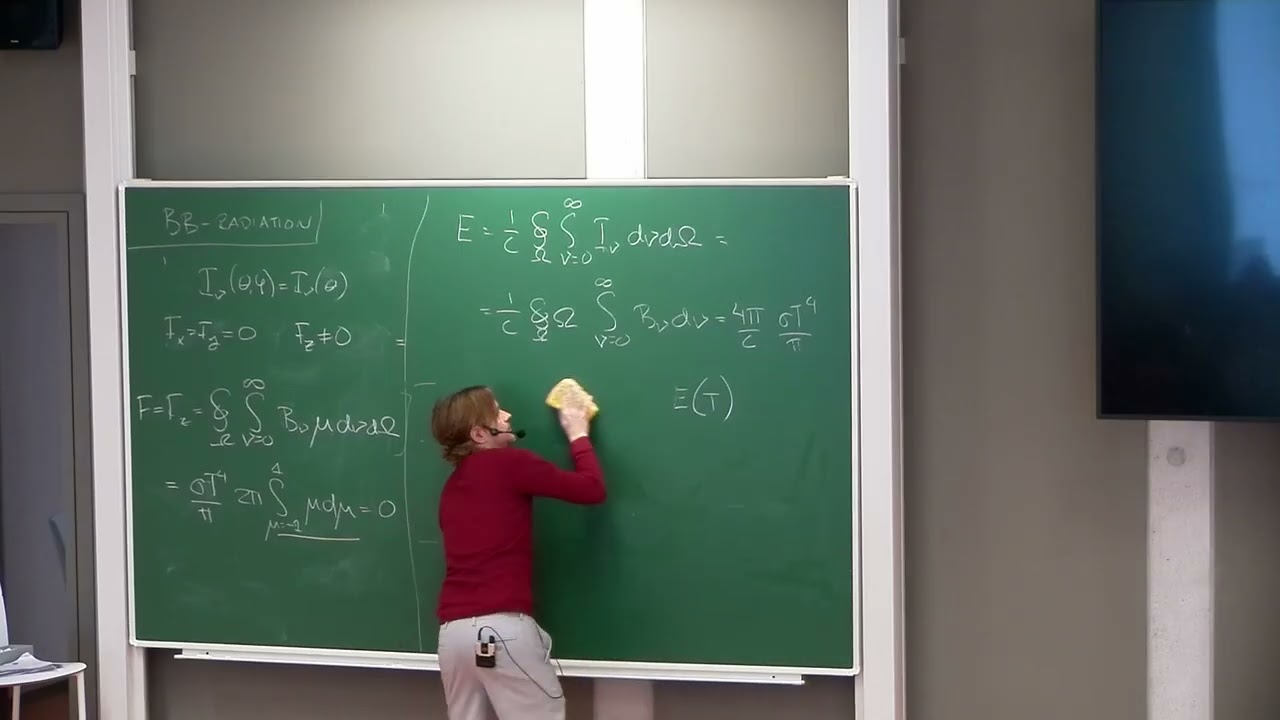 BB-RADIATION
I_ν(θ,φ)=I_ν(θ)
F_x=F_y=0 F_z≠0
F=F_z=∮_Ω ∫_{ν=0}^∞ B_ν μ dν dΩ
= σT⁴/π 2π ∫_{μ=-1}^1 μdμ = 0
E = 1/c ∮_Ω ∫_{ν=0}^∞ I_ν dν dΩ =
= 1/c ∮_Ω Ω ∫_{ν=0}^∞ B_ν dν = 4π/c σT⁴/π
E(T)